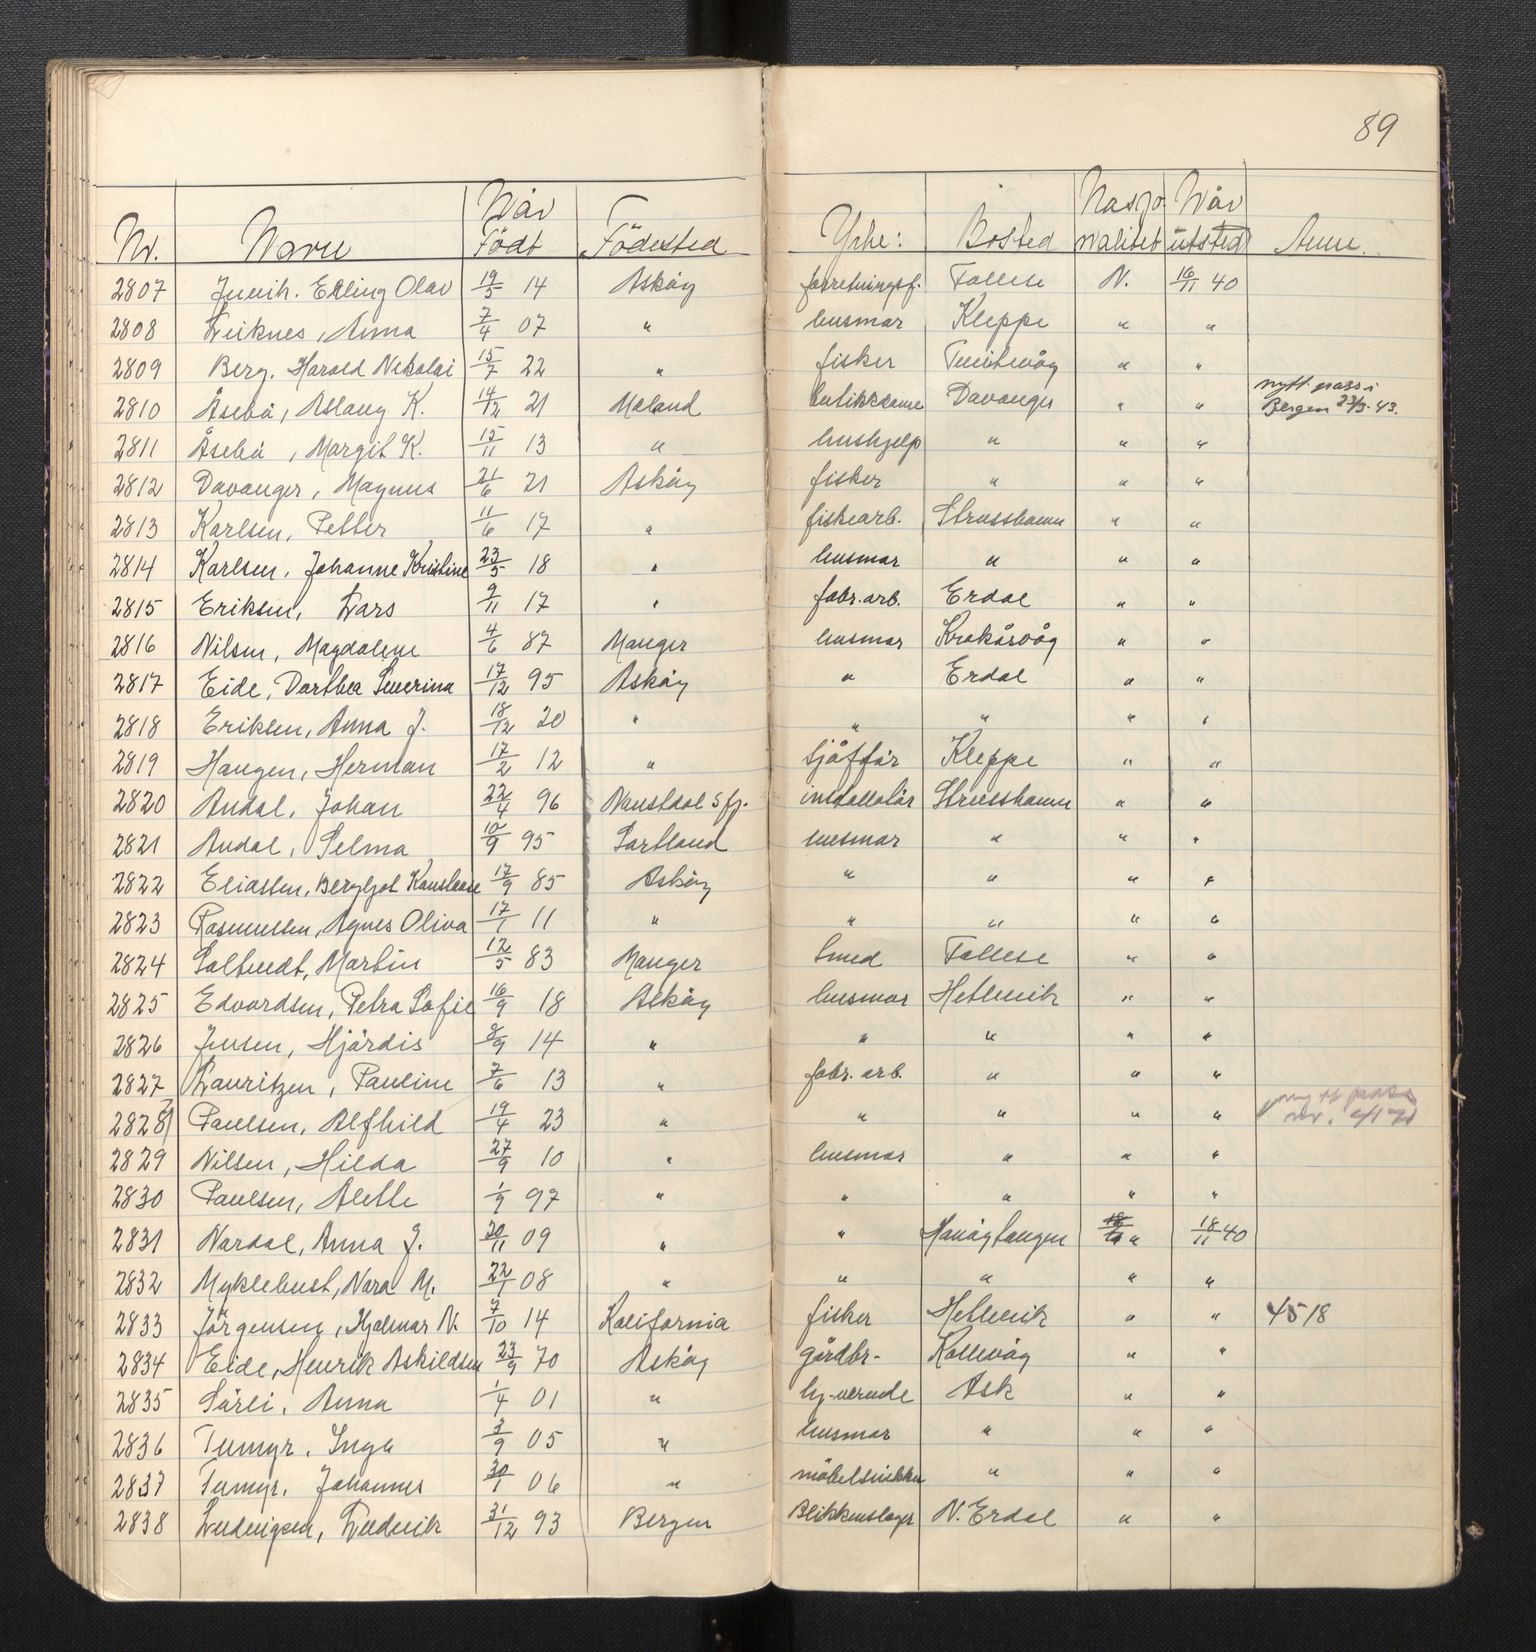 89
Nr. Navn Når Født Fødested Yrke: Bosted Nasjonalitet Når utsted Anm.
2807 Erling Olav 19/5 14 Askøy forretningsf. Follese N. 16/11 40
2808 Leiknes, Anna 7/4 07 " husmor Kleppe " "
2809 Berg. Harald Nikolai 15/7 22 " fisker " "
2810 Åsebø, Aslaug K. 14/12 21 Meland butikkdame Davanger " " nytt pass i Bergen 23/3-43.
2811 Åsebø, Margit K. 15/11 13 " hushjelp " " "
2812 Davanger, Magnus 21/6 21 Askøy fisker " " "
2813 Karlsen, Petter 11/6 17 " fiskearb. Strusshamn " "
2814 Karlsen, Johanne Kristine 23/5 18 " husmor " " "
2815 Eriksen, Lars 9/11 17 " fabr.arb. Erdal " "
2816 Nilsen, Magdalene 4/6 87 Manger husmor Krokåsvåg " "
2817 Eide, Dorthea Severina 17/12 95 Askøy " Erdal " "
2818 Eriksen, Anna J. 18/12 20 " " " " "
2819 Haugen, Herman 17/2 12 " Sjåffør Kleppe " "
2820 Andal, Johan 22/4 96 Naustdal S fj. installatør Strusshamn " "
2821 Andal, Selma 10/9 95 Sortland husmor " " "
2822 Eliassen, Bergljot Konstanse 17/9 85 Askøy " " " "
2823 Rasmussen, Agnes Oliva 17/1 11 " " " " "
2824 Saltvedt, Martin 12/5 83 Manger Smed Follese " "
2825 Edvardsen, Petra Sofie 16/9 18 Askøy husmor Hetlevik " "
2826 Jensen, Hjørdis 8/9 14 " " " " "
2827 Lauritzen, Pauline 7/6 13 " fabr. arb. " " "
2828 Paulsen, Alfhild 19/4 23 " " " " " nytt pass nr.
2829 Nilsen, Hilda 27/9 10 " husmor " " "
2830 Paulsen, Alette 1/9 97 " " " " "
2831 Nordal, Anna J. 30/11 09 " " Hanøytangen " 18/11 40
2832 Myklebust, Nora M. 22/1 08 " " " " "
2833 Jørgensen, Hjalmar N. 7/10 14 Kalifornia fisker Hetlevik " " 4518
2834 Eide, Henrik Askildsen 23/9 70 Askøy gårdbr- Kollevåg " "
2835 Sørli, Anna 1/4 01 " hj-værende Ask " "
2836 Tumyr. Inga 3/9 05 " husmor " " "
2837 Tumyr. Johannes 30/1 06 " møbelsnikker " " "
2838 Ludvigsen, Ludvik 31/12 93 Bergen Blikkenslager N. Erdal " "